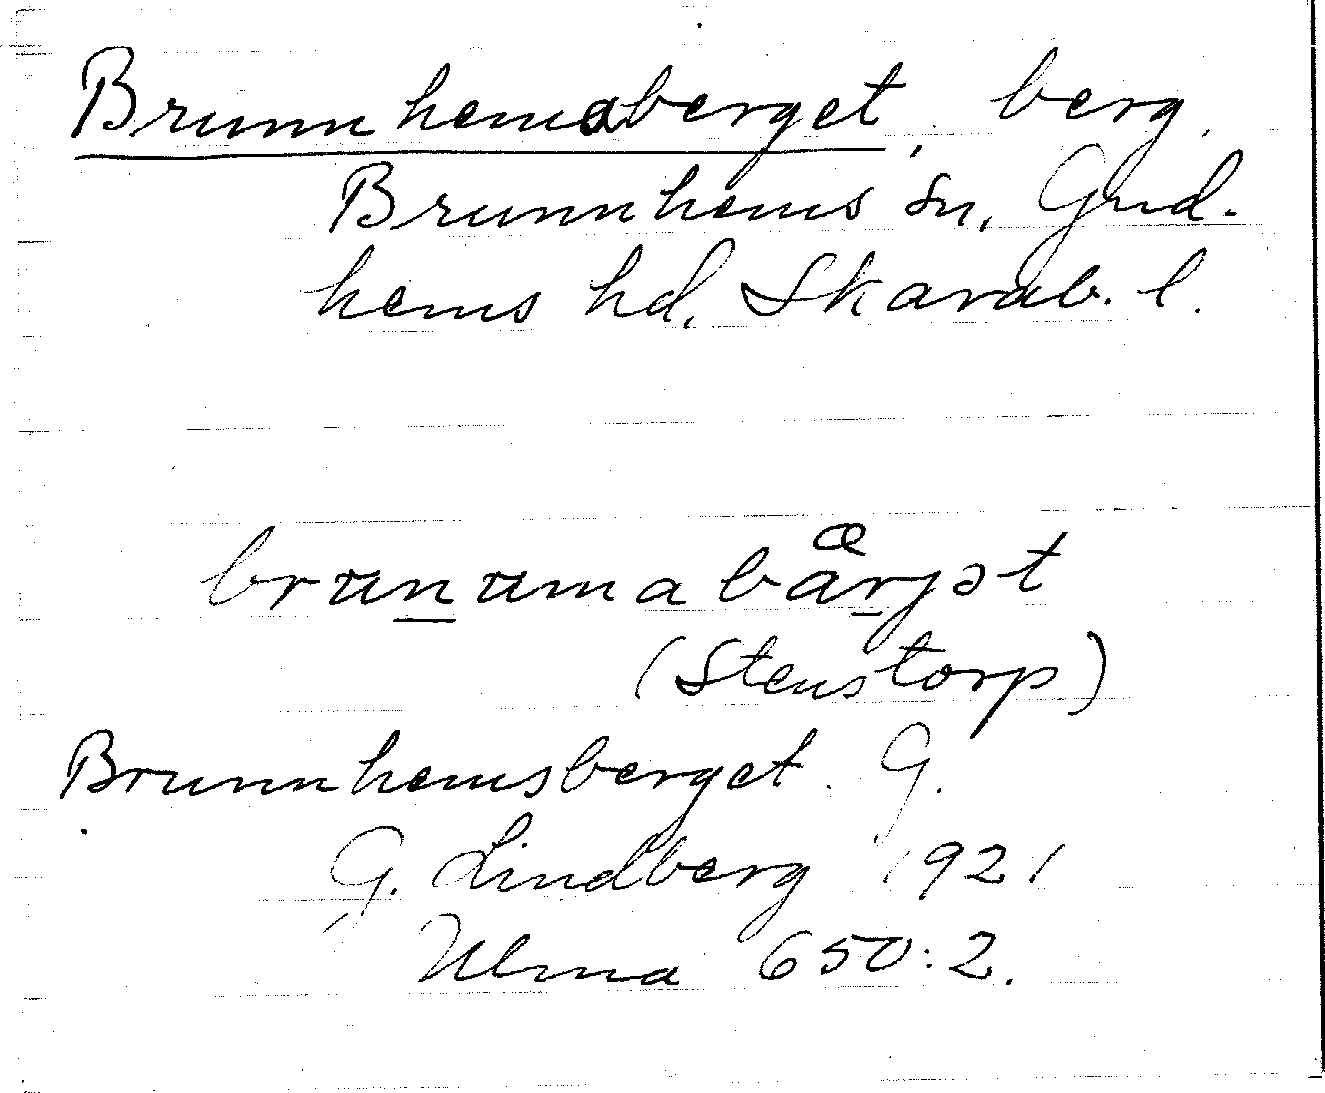 Brunnhemsberget, berg.
Brunnhems sn, Gud-
hems hd, Skarab. l.
(Stenstorp)
Brunnhemsberget. G.
G. Lindberg 1921
Ulma 650:2.